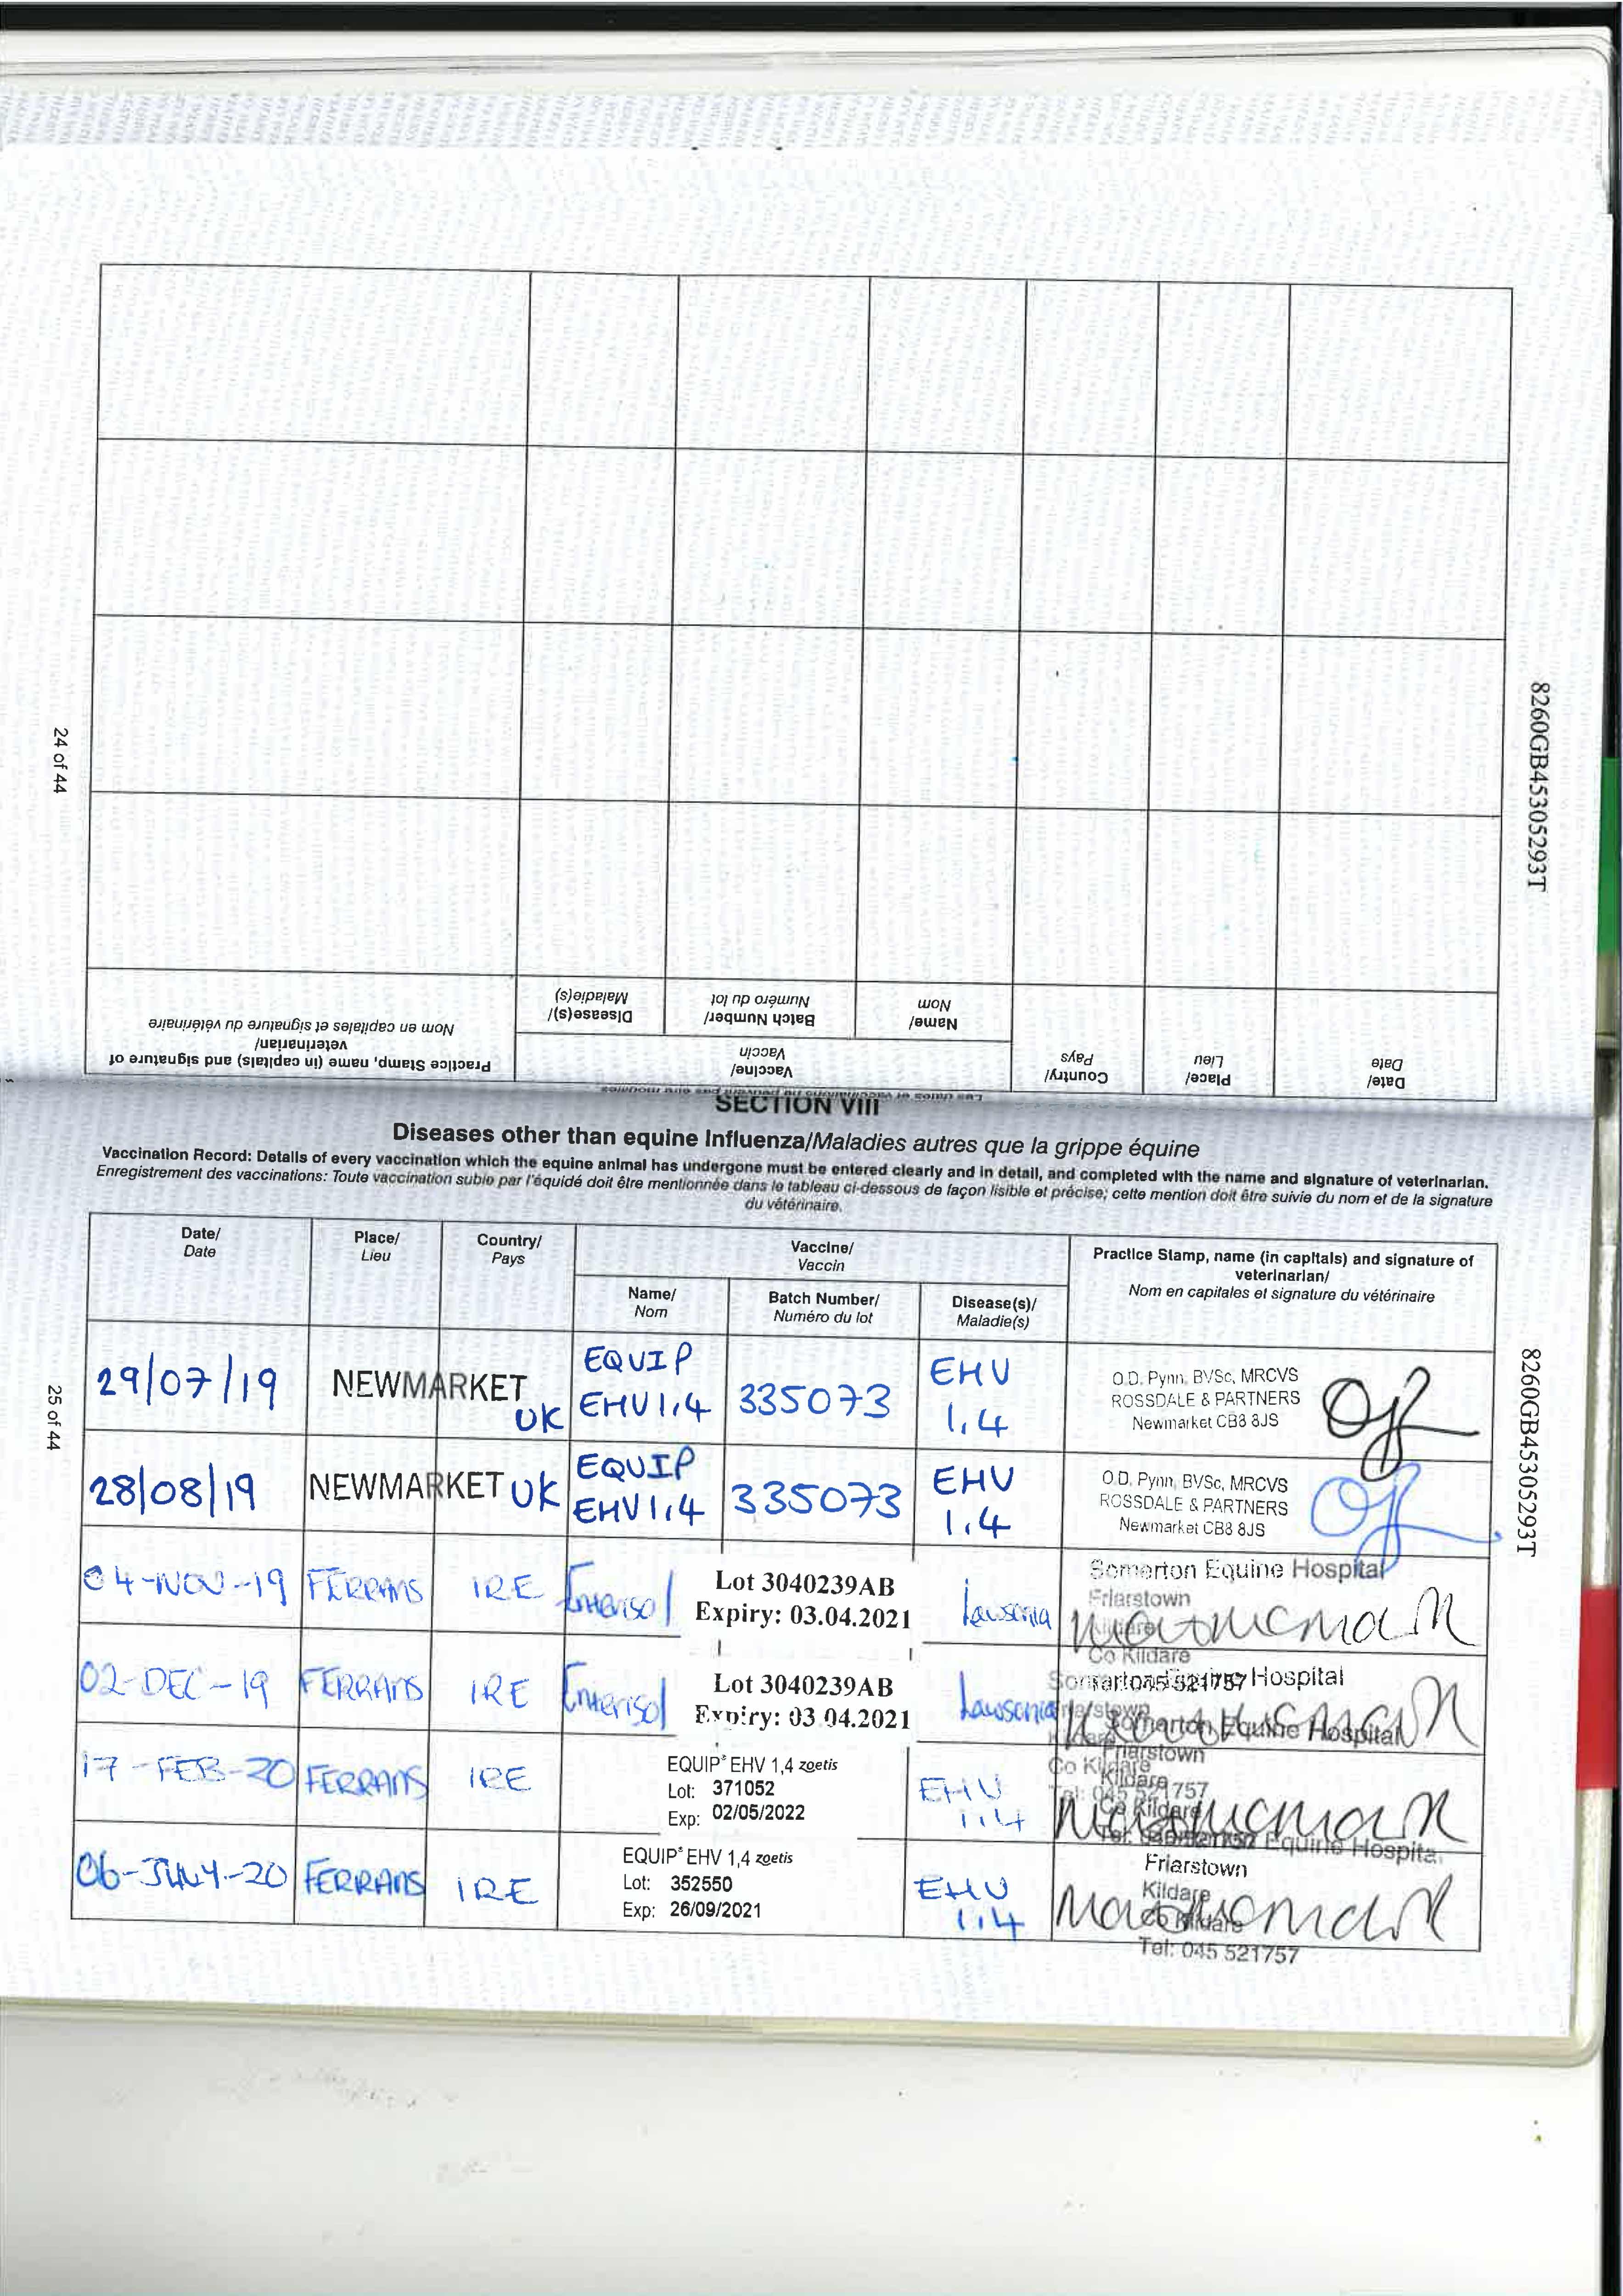 24 of 44
8260GB45305293T
Date/
Date
Place/
Lieu
Country/
Pays
Vaccine/
Vaccin
Name/
Nom
Batch Number/
Numéro du lot
Disease(s)/
Maladie(s)
Practice Stamp, name (in capitals) and signature of
veterinarian/
Nom en capitales et signature du vétérinaire
SECTION VIII
Diseases other than equine Influenza/Maladies autres que la grippe équine
Vaccination Record: Details of every vaccination which the equine animal has undergone must be entered clearly and in detail, and completed with the name and signature of veterinarian.
Enregistrement des vaccinations: Toute vaccination subie par l'équidé doit être mentionnée dans le tableau ci-dessous de façon lisible et précise; cette mention doit être suivie du nom et de la signature
du vétérinaire.
25 of 44
8260GB45305293T
Date/
Date
Place/
Lieu
Country/
Pays
Vaccine/
Vaccin
Name/
Nom
Batch Number/
Numéro du lot
Disease(s)/
Maladie(s)
Practice Stamp, name (in capitals) and signature of
veterinarian/
Nom en capitales et signature du vétérinaire
29/07/19
NEWMARKET
UK
EQUIP
EHV 1,4
335073
EHV
1,4
O.D. Pynn, BVSc, MRCVS
ROSSDALE & PARTNERS
Newmarket CB8 8JS
28/08/19
NEWMARKET UK
EQUIP
EHV 1,4
335073
EHV
1,4
O.D. Pynn, BVSc, MRCVS
ROSSDALE & PARTNERS
Newmarket CB8 8JS
04-NOV-19
FERRANS
IRE
Enterisol
Lot 3040239AB
Expiry: 03.04.2021
Lawsonia
Somerton Equine Hospital
Friarstown
Kildare
Co Kildare
02-DEC-19
FERRANS
IRE
Enterisol
Lot 3040239AB
Expiry: 03.04.2021
Lawsonia
Hospital
Somerton Equine Hospital
Friarstown
Kildare
Co Kildare
17-FEB-20
FERRANS
IRE
EQUIP® EHV 1,4 zoetis
Lot: 371052
Exp: 02/05/2022
EHV
1,4
Equine Hospital
06-JULY-20
FERRANS
IRE
EQUIP® EHV 1,4 zoetis
Lot: 352550
Exp: 26/09/2021
EHV
1,4
Friarstown
Kildare
Co Kildare
Tel: 045 521757